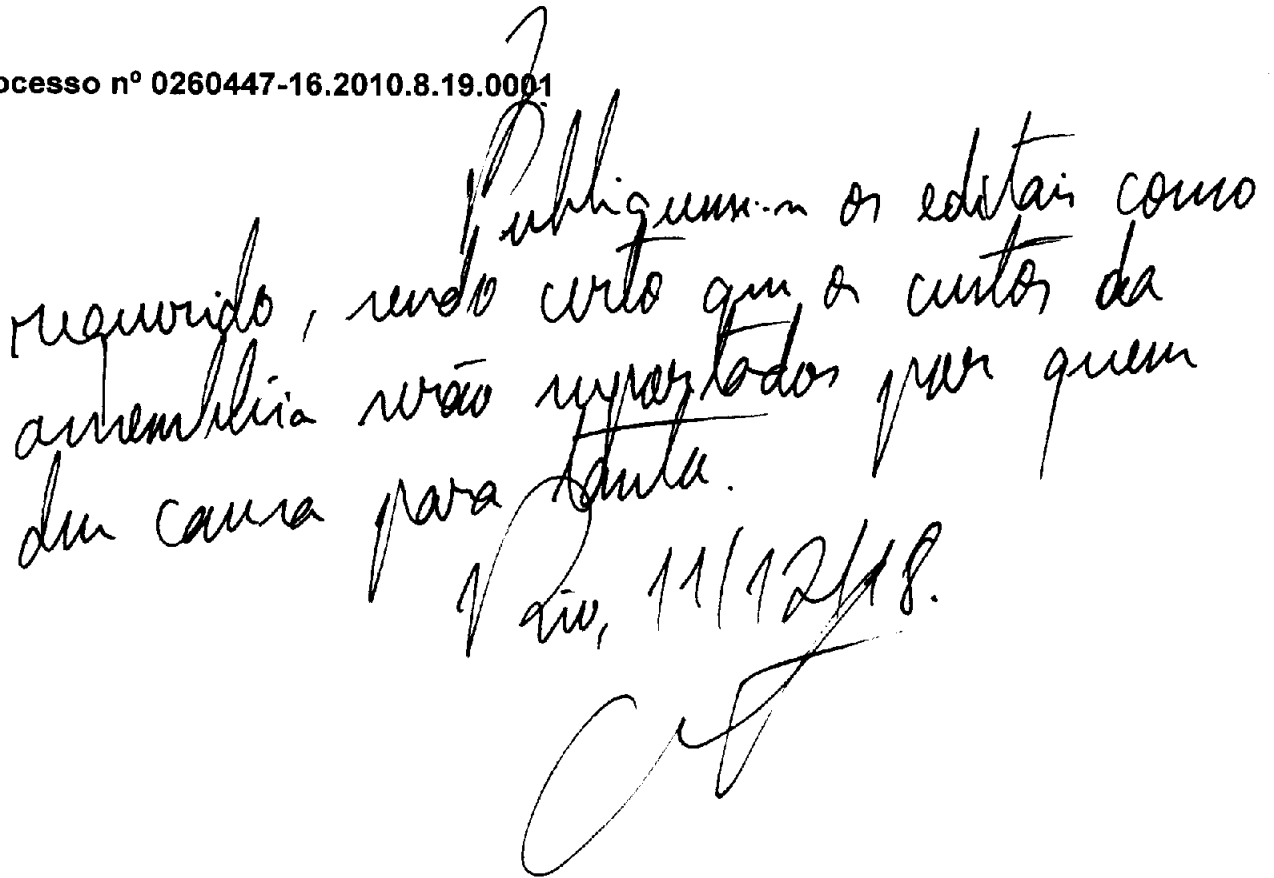 ocesso nº 0260447-16.2010.8.19.0001
Publiquem-se os editais como
requerido, sendo certo que os custos da
assembléia serão suportados por quem
deu causa para tanto.
Rio, 11/12/18.